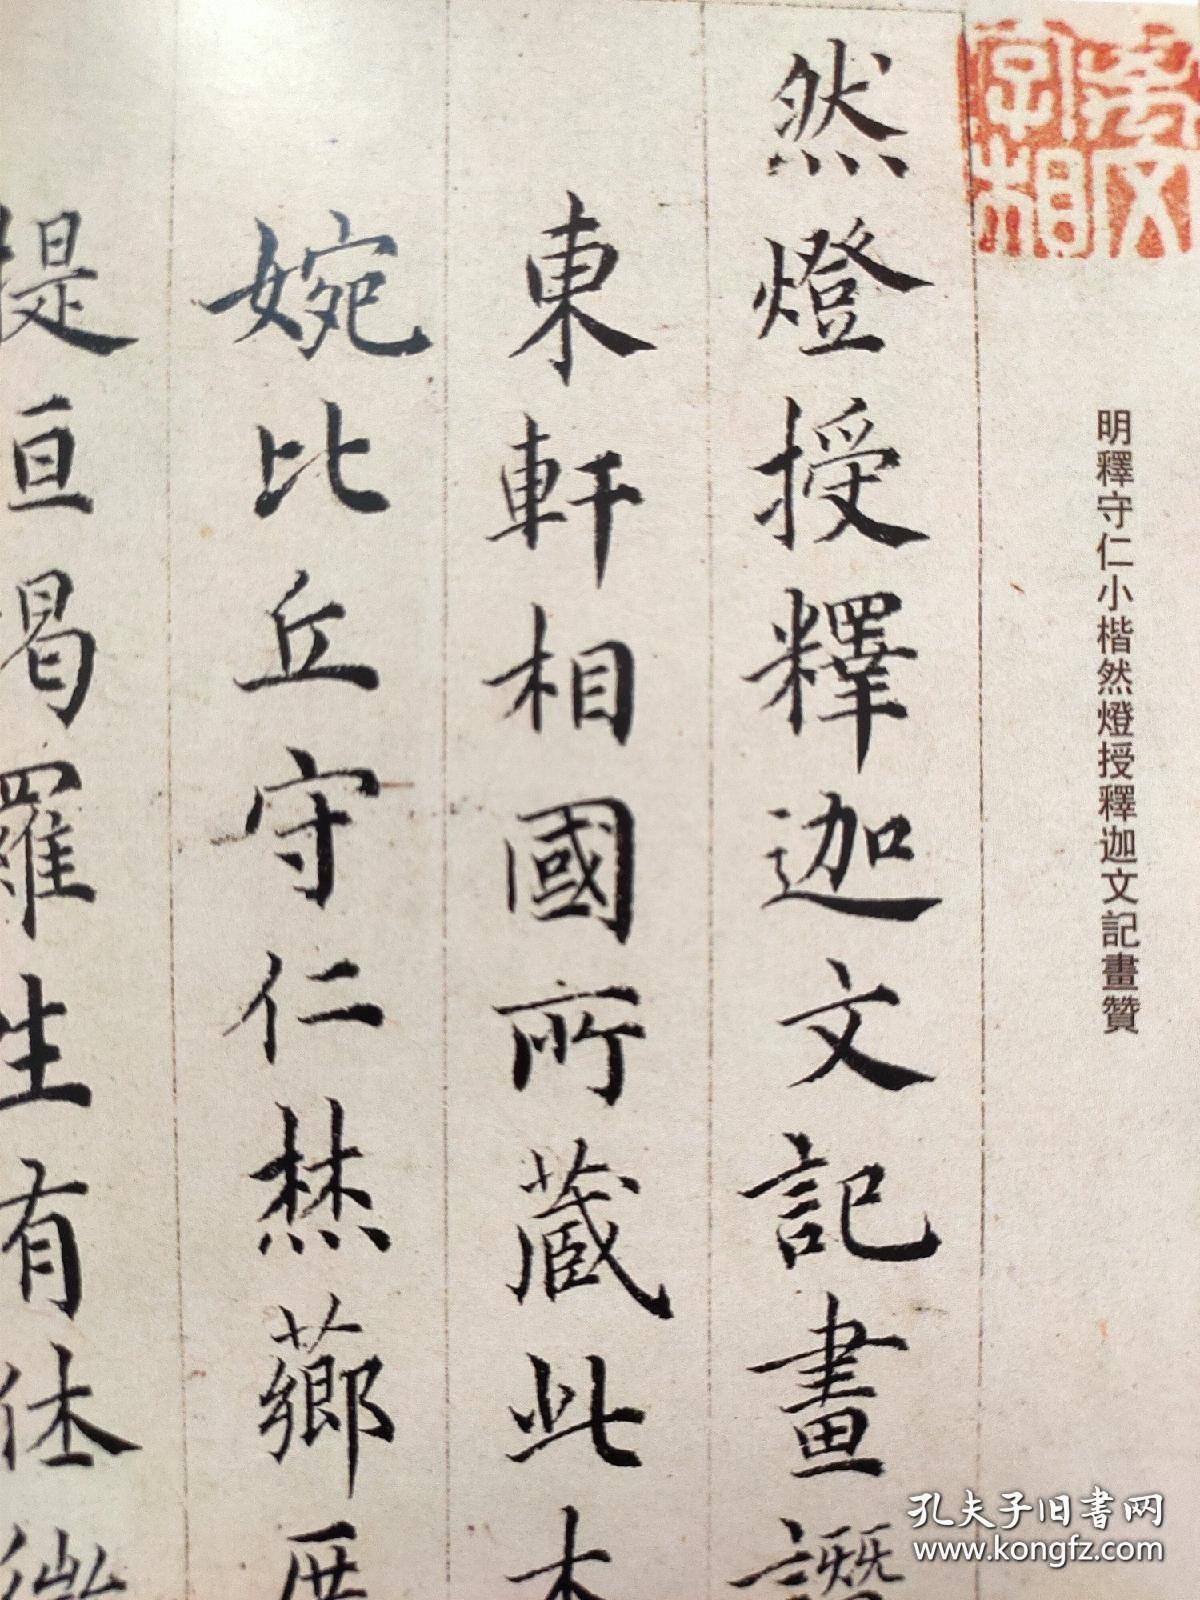 明釋守仁小楷然燈授釋迦文記畫贊
然燈授釋迦文記畫讃
東軒相國所藏此本
婉比丘守仁焚薌
提亘曷羅生有休徵
孔夫子旧书网
www.kongfz.com